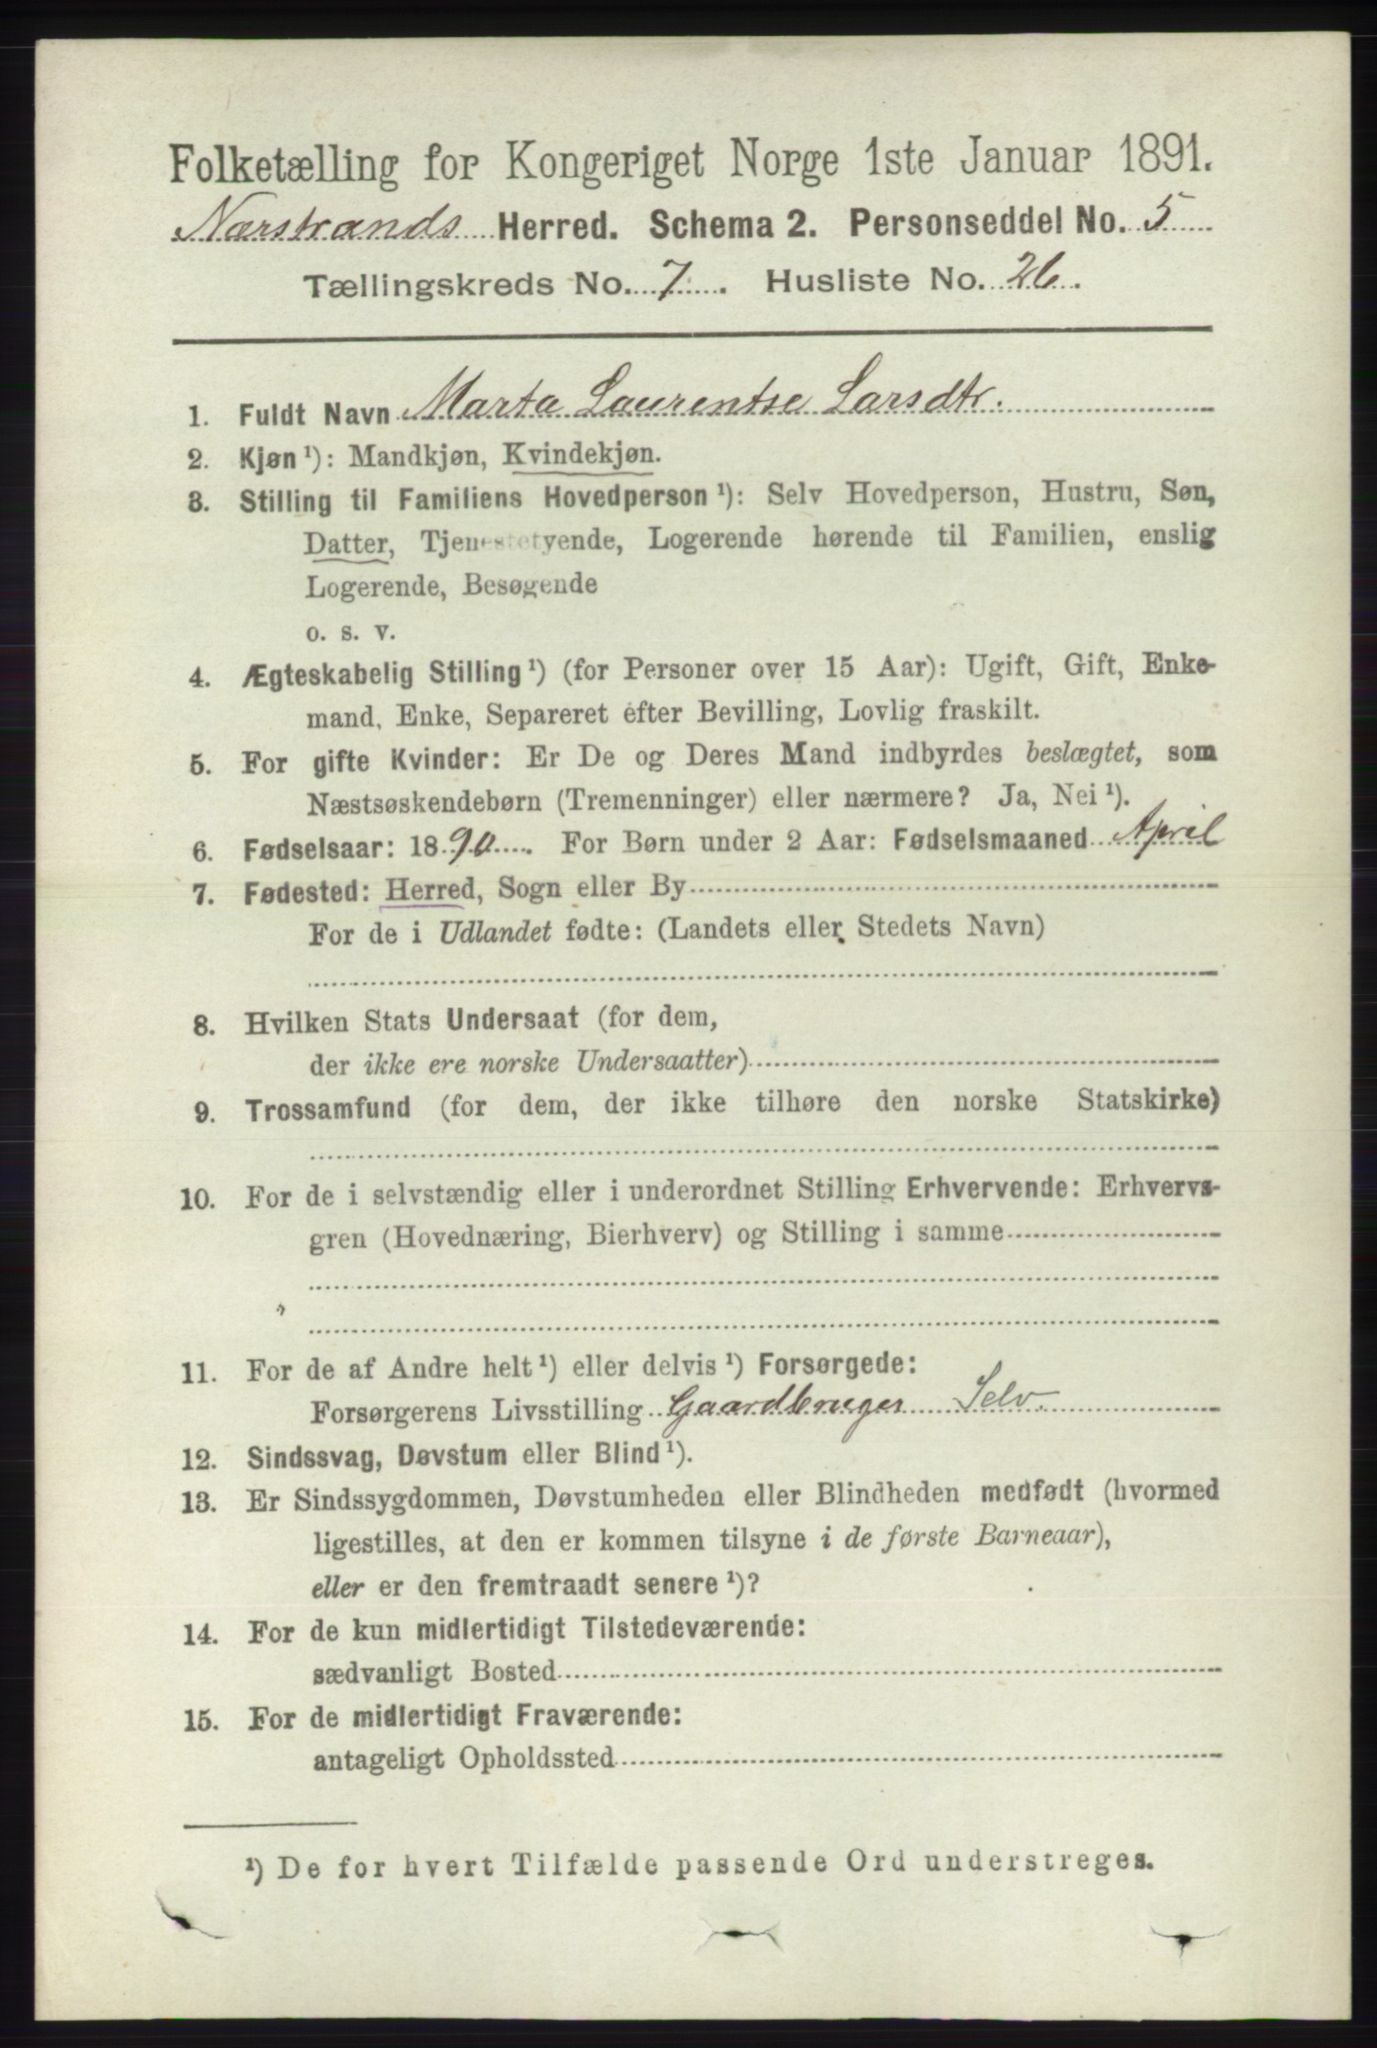 Folketælling for Kongeriget Norge 1ste Januar 1891.
Nærstrands Herred. Schema 2. Personseddel No. 5
Tællingskreds No. 7. Husliste No. 26.
1. Fuldt Navn Marta Laurentse Larsdtr.
2. Kjøn ¹): Mandkjøn, Kvindekjøn.
3. Stilling til Familiens Hovedperson ¹): Selv Hovedperson, Hustru, Søn,
Datter, Tjenestetyende, Logerende hørende til Familien, enslig
Logerende, Besøgende
o. s. v.
4. Ægteskabelig Stilling ¹) (for Personer over 15 Aar): Ugift, Gift, Enke-
mand, Enke, Separeret efter Bevilling, Lovlig fraskilt.
5. For gifte Kvinder: Er De og Deres Mand indbyrdes beslægtet, som
Næstsøskendebørn (Tremenninger) eller nærmere? Ja, Nei ¹).
6. Fødselsaar: 1890. For Børn under 2 Aar: Fødselsmaaned April
7. Fødested: Herred, Sogn eller By
For de i Udlandet fødte: (Landets eller Stedets Navn)
8. Hvilken Stats Undersaat (for dem,
der ikke ere norske Undersaatter)
9. Trossamfund (for dem, der ikke tilhøre den norske Statskirke)
10. For de i selvstændig eller i underordnet Stilling Erhvervende: Erhvervs-
gren (Hovednæring, Bierhverv) og Stilling i samme
11. For de af Andre helt ¹) eller delvis ¹) Forsørgede:
Forsørgerens Livsstilling Gaardbruger Selv.
12. Sindssvag, Døvstum eller Blind ¹).
13. Er Sindssygdommen, Døvstumheden eller Blindheden medfødt (hvormed
ligestilles, at den er kommen tilsyne i de første Barneaar),
eller er den fremtraadt senere ¹)?
14. For de kun midlertidigt Tilstedeværende:
sædvanligt Bosted
15. For de midlertidigt Fraværende:
antageligt Opholdssted
¹) De for hvert Tilfælde passende Ord understreges.